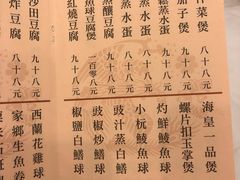 什菜煲 八十八元
茄子煲 八十八元
蒸水蛋 九十八元
蒸水蛋 九十八元
蒸釀豆腐 九十八元
魚球豆腐煲 一百零八元
紅燒豆腐 九十八元
沙田豆腐 九十八元
炸豆腐 八十八元
海皇一品煲
螺片扣玉掌煲
灼鮮鯪魚球
小炆鯪魚球
豉汁蒸白鱔
豉椒炒鱔球
椒鹽白鱔球
西蘭花雞球
家鄉生魚卷